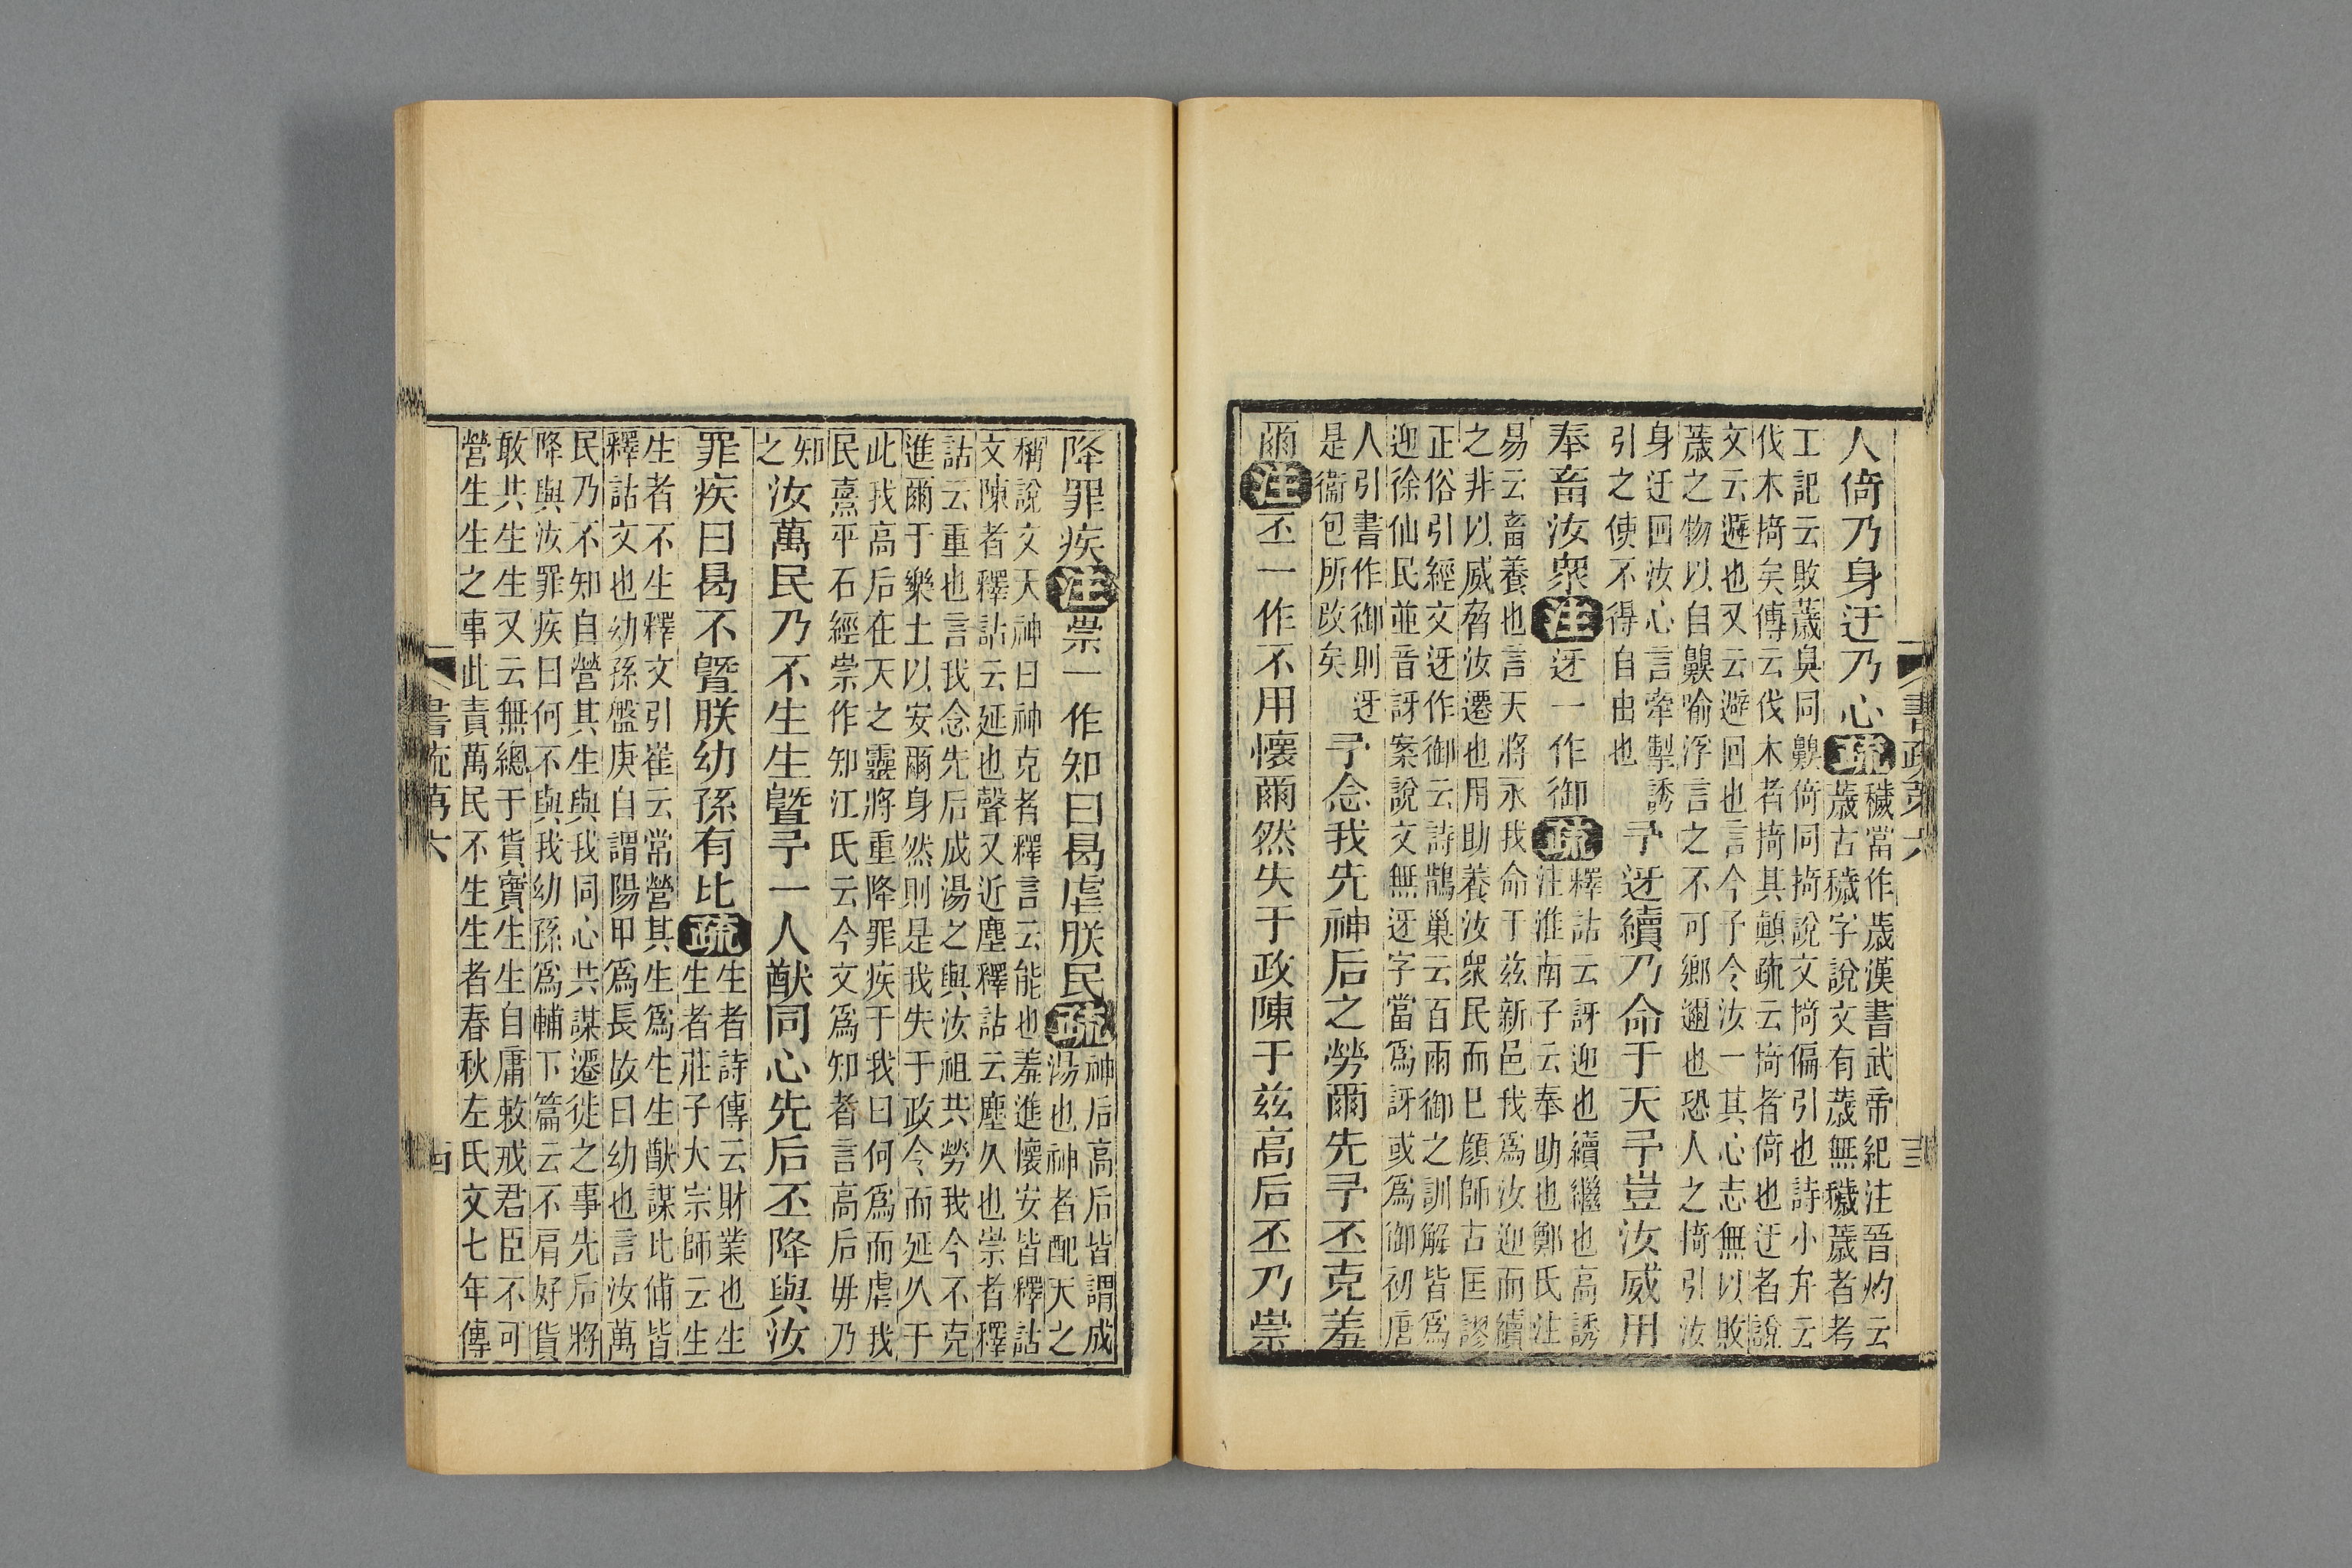 人倚乃身迂乃心疏
穢當作薉漢書武帝紀注晉灼云
薉古穢字說文有薉無穢薉者考
工記云敗薉臭同齅倚同掎說文掎偏引也詩小弁云
伐木掎矣傳云伐木者掎其顚疏云掎者倚也迂者說
文云避也又云避回也言今予令汝一其心志無以敗
薉之物以自齅喻浮言之不可鄉邇也恐人之掎引汝
身迂回汝心言牽掣誘
引之使不得自由也
予迓續乃命于天予豈汝威用
奉畜汝衆注迓一作御疏
釋詁云訝迎也續繼也高誘
注淮南子云奉助也鄭氏注
易云畜養也言天將永我命于茲新邑我爲汝迎而續
之非以威脅汝遷也用助養汝衆民而已顔師古匡謬
正俗引經文迓作御云詩鵲巢云百兩御之訓解皆爲
迎徐仙民並音訝案說文無迓字當爲訝或爲御初唐
人引書作御則迓
是衞包所改矣
予念我先神后之勞爾先予丕克羞
爾注丕一作不用懷爾然失于政陳于茲高后丕乃崇
降罪疾注崇一作知曰曷虐朕民疏
神后高后皆謂成
湯也神者配天之
稱說文天神曰神克者釋言云能也羞進懷安皆釋詁
文陳者釋詁云延也聲又近塵釋詁云塵久也崇者釋
詁云重也言我念先后成湯之與汝祖共勞我今不克
進爾于樂土以安爾身然則是我失于政令而延久于
此我高后在天之靈將重降罪疾于我曰何爲而虐我
民熹平石經崇作知江氏云今文爲知者言高后毋乃
知
之
汝萬民乃不生生曁予一人猷同心先后丕降與汝
罪疾曰曷不曁朕幼孫有比疏
生者詩傳云財業也生
生者莊子大宗師云生
生者不生釋文引崔云常營其生爲生生猷謀比俌皆
釋詁文也幼孫盤庚自謂陽甲爲長故曰幼也言汝萬
民乃不知自營其生與我同心共謀遷徙之事先后將
降與汝罪疾曰何不與我幼孫爲輔下篇云不肩好貨
敢共生生又云無總于貨寶生生自庸敕戒君臣不可
營生生之事此責萬民不生生者春秋左氏文七年傳
書疏第六